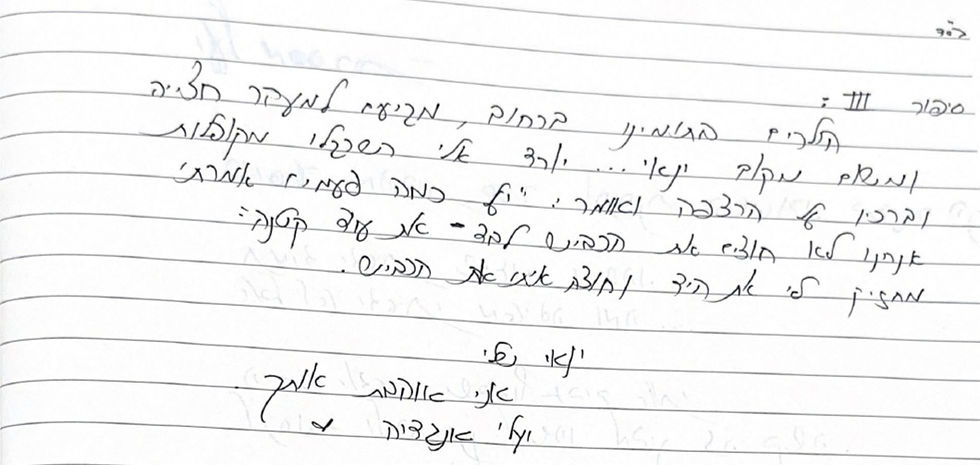 בס"ד
סיפור III:
הולכים התומינו ברחוב, מגיעים למעבר חצייה
ומשום מקום ינאי... יורד אלי השרוולי מקופלות
וברכיו על הרצפה ואומר: "יעל כמה פעמים אמרתי
אנחנו לא חוצים את הכביש לבד - את עוד קטנה"
מחזיק לי את היד וחוצה איתי את הכביש.
ינאי שלי
אני אוהבת אותך
יעלי